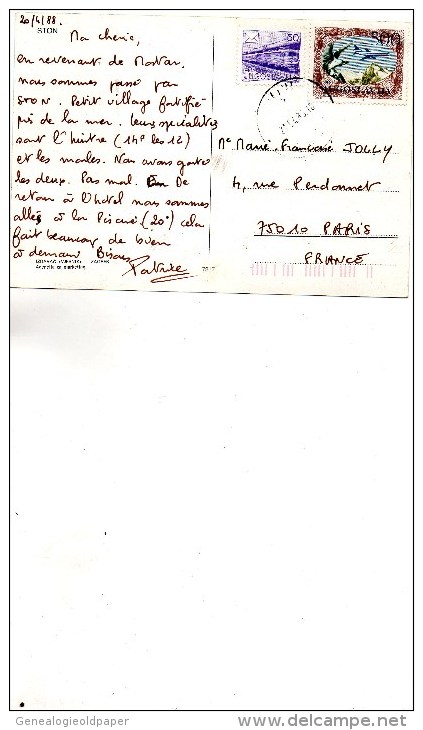 20/4/88.
STON
Ma cherie,
en revenant de Mostar,
nous sommes passé par
STON. Petit village fortifié
près de la mer. Leurs spécialités
sont l'huitre (14F les 12)
et les moules. Nous avons gouté
les deux. Pas mal. De
retour à l'hôtel nous sommes
allés à la Piscine (20°) cela
fait beaucoup de bien
à demain Bises
Patrice
50
JUGOSLAVIJA
Me Marie-Francoise JOLLY
4, rue Perdonnet
75010 PARIS
FRANCE
ZAGREB
Agencija za marketing
Genealogieoldpaper
delcampe.net